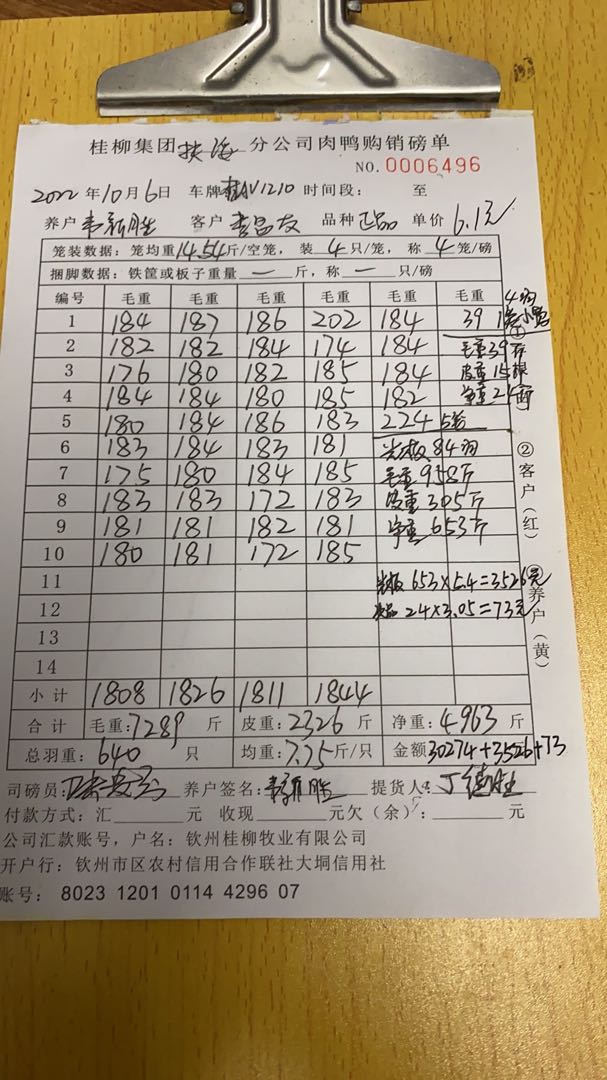 桂柳集团 扶海 分公司肉鸭购销磅单
NO.0006496
2022年10月6日 车牌 V1210 时间段： 至
养户 韦新胜 客户 李昌友 品种 正品 单价 6.1元
笼装数据：笼均重14.54斤/空笼，装 4 只/笼，称 4 笼/磅
捆脚数据：铁筐或板子重量 一 斤，称 一 只/磅
编号 毛重 毛重 毛重 毛重 毛重 毛重 4羽
1 184 187 186 202 184 39 1笼小鸭
①
2 182 182 184 174 184 毛重39斤
3 176 180 182 185 184 皮重15斤
4 184 184 180 185 182 净重24斤
5 180 184 186 183 224 5笼
6 183 184 183 181 光板84羽
②客户（红）
7 175 180 184 185 毛重958斤
8 183 183 172 183 皮重305斤
9 181 181 182 181 净重653斤
10 180 181 172 185
11 光板 653×5.4=3526元
③养户（黄）
12 24×3.05=73元
13
14
小计 1808 1826 1811 1844
合计 毛重：7289 斤 皮重：2326 斤 净重：4963 斤
总羽重：640 只 均重：7.75斤/只 金额30274+3526+73
司磅员： 养户签名：韦新胜 提货人： 丁德胜
付款方式：汇 元 收现 元欠（余）： 元
公司汇款账号，户名：钦州桂柳牧业有限公司
开户行：钦州市区农村信用合作联社大垌信用社
账号：8023 1201 0114 4296 07